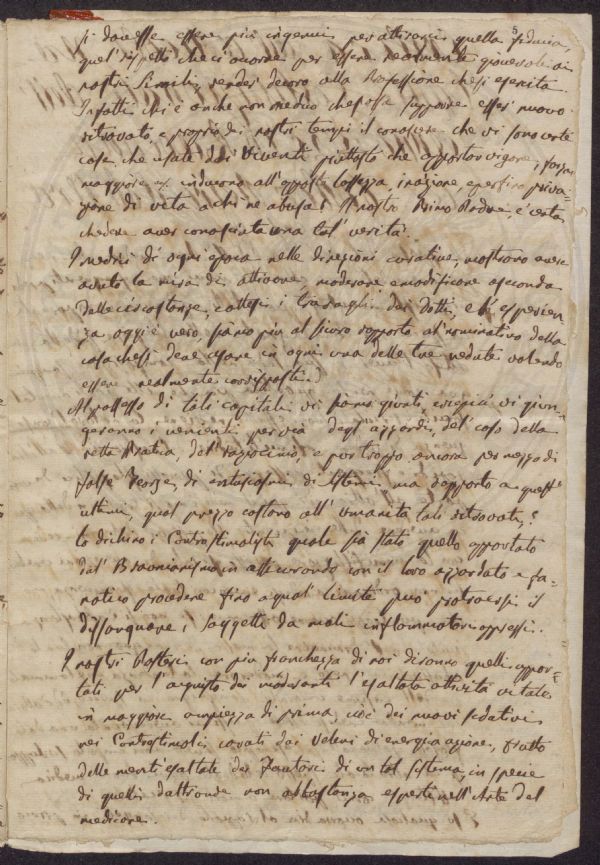 5
si dovesse essere più ingenui per attirarci quella fiducia,
quel rispetto che ci occorre per essere realmente giovevoli ai
nostri Simili, e render decoro alla Professione che si esercita.
Infatti chi è anche non medico che possa supporre esser nuovo
ritrovato, e proprio dei nostri tempi il conoscere che vi sono certe
cose, che usate dai Viventi piuttosto che apportar vigore, forza
maggiore inducono all'opposto lassezza, inazione, e perfino priva-
zione di vita a chi ne abusa! Il nostro Primo Padre, è certo
chedere aver conosciuta una tal verità.
I medici di ogni epoca nelle direzioni curative, mostrano avere
avuto la mira di attivare moderare e modificare a seconda
delle circostanze, cattesi i travagli dei Dotti, e l'esperien-
za oggi è vero, siamo più al sicuro rapporto al nominativo della
cosa che si deve usare in ogni una delle tre vedute volendo
essere realmente corrisposti.
Al possesso di tali capitali vi siamo giunti, e vi giun-
geranno i venienti per via degl'azzardi, del caso della
retta Pratica, del raziocinio, e pur troppo ancora per mezzo di
false Teorie, di entusiasmi, di sistemi, ma rapporto a quest'
ultimi, qual prezzo costano all'umanità tali ritrovati?
Lo dichino i Controstimolisti quale sia stato quello apportato
dal Brawnianismo in assicurando con il loro azzardato e fa-
natico procedere fino a qual limite può protraersi il
dissanguare i soggetti da mali inflammatori oppressi.
I nostri Posteri con più franchezza di noi diranno quelli appor-
tati per l'acquisto dei moderanti l'esaltata attività vitale
in maggiore ampiezza di prima, cioè dei nuovi sedativi
nei Controstimoli, cavati dai Veleni di energica azione, fratto
delle menti esaltate dei Fautori di un tal sistema, in specie
di quelli d'altronde non abbastanza esperti nell'Arte del
medicare.